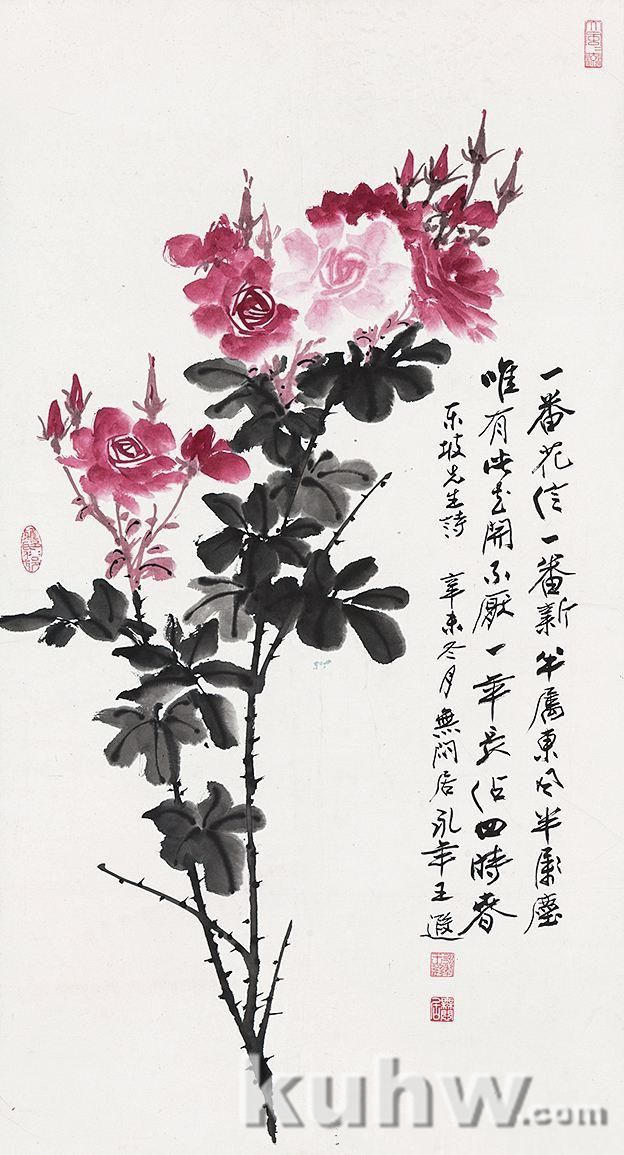 一番花信一番新半属東风半属塵
唯有此花開不厭一年长佔四時春
东坡先生詩 辛未冬月無闷居永年王遐
kuhw.com